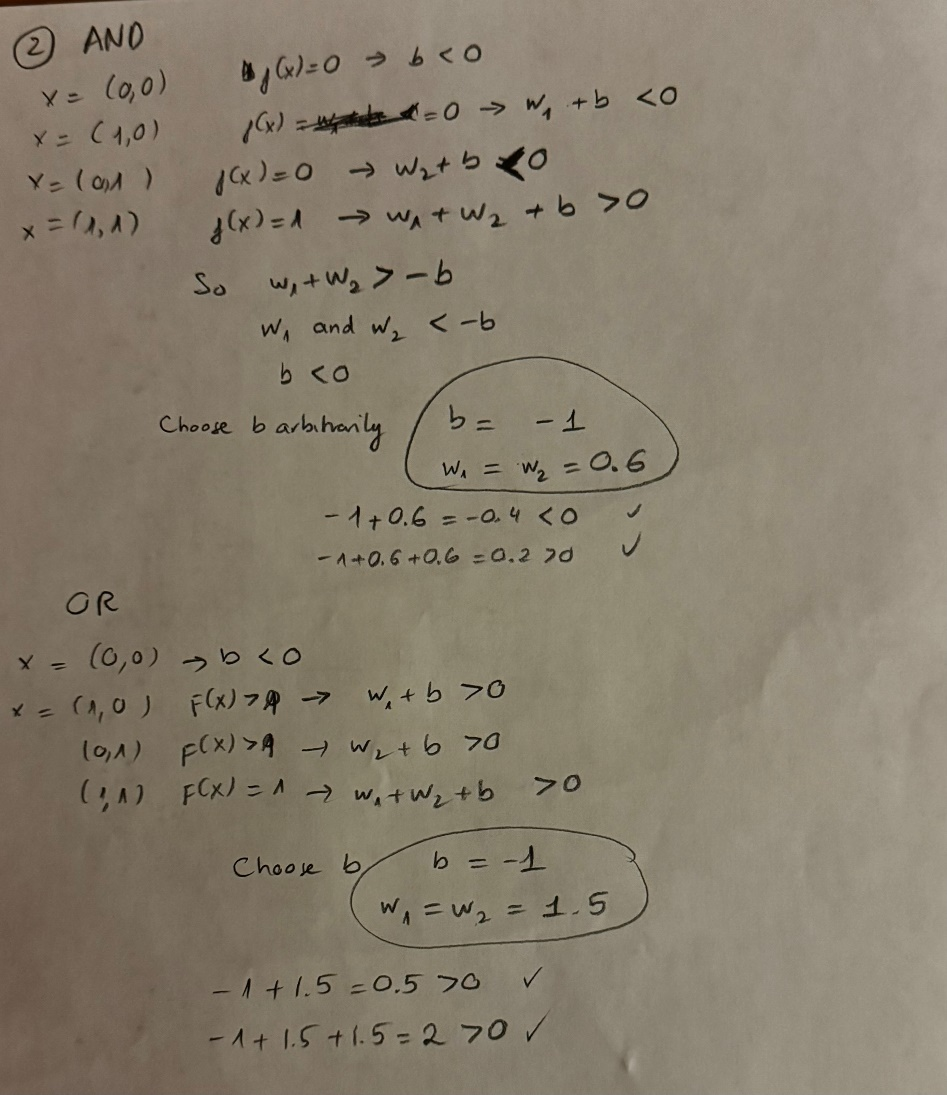 ② AND
x = (0,0) f(x)=0 → b < 0
x = (1,0) f(x) = =0 → w₁ + b < 0
x = (0,1) f(x)=0 → w₂ + b < 0
x = (1,1) f(x)=1 → w₁ + w₂ + b > 0
So w₁+w₂ > -b
w₁ and w₂ < -b
b < 0
Choose b arbitrarily b = -1
w₁ = w₂ = 0.6
-1+0.6 = -0.4 < 0 ✓
-1+0.6+0.6 = 0.2 >0 ✓
OR
x = (0,0) → b < 0
x = (1,0) F(x)> → w₁ + b > 0
(0,1) F(x)> → w₂ + b > 0
(1,1) F(x) = 1 → w₁+w₂+b > 0
Choose b b = -1
w₁ = w₂ = 1.5
-1 + 1.5 = 0.5 > 0 ✓
-1 + 1.5 + 1.5 = 2 > 0 ✓